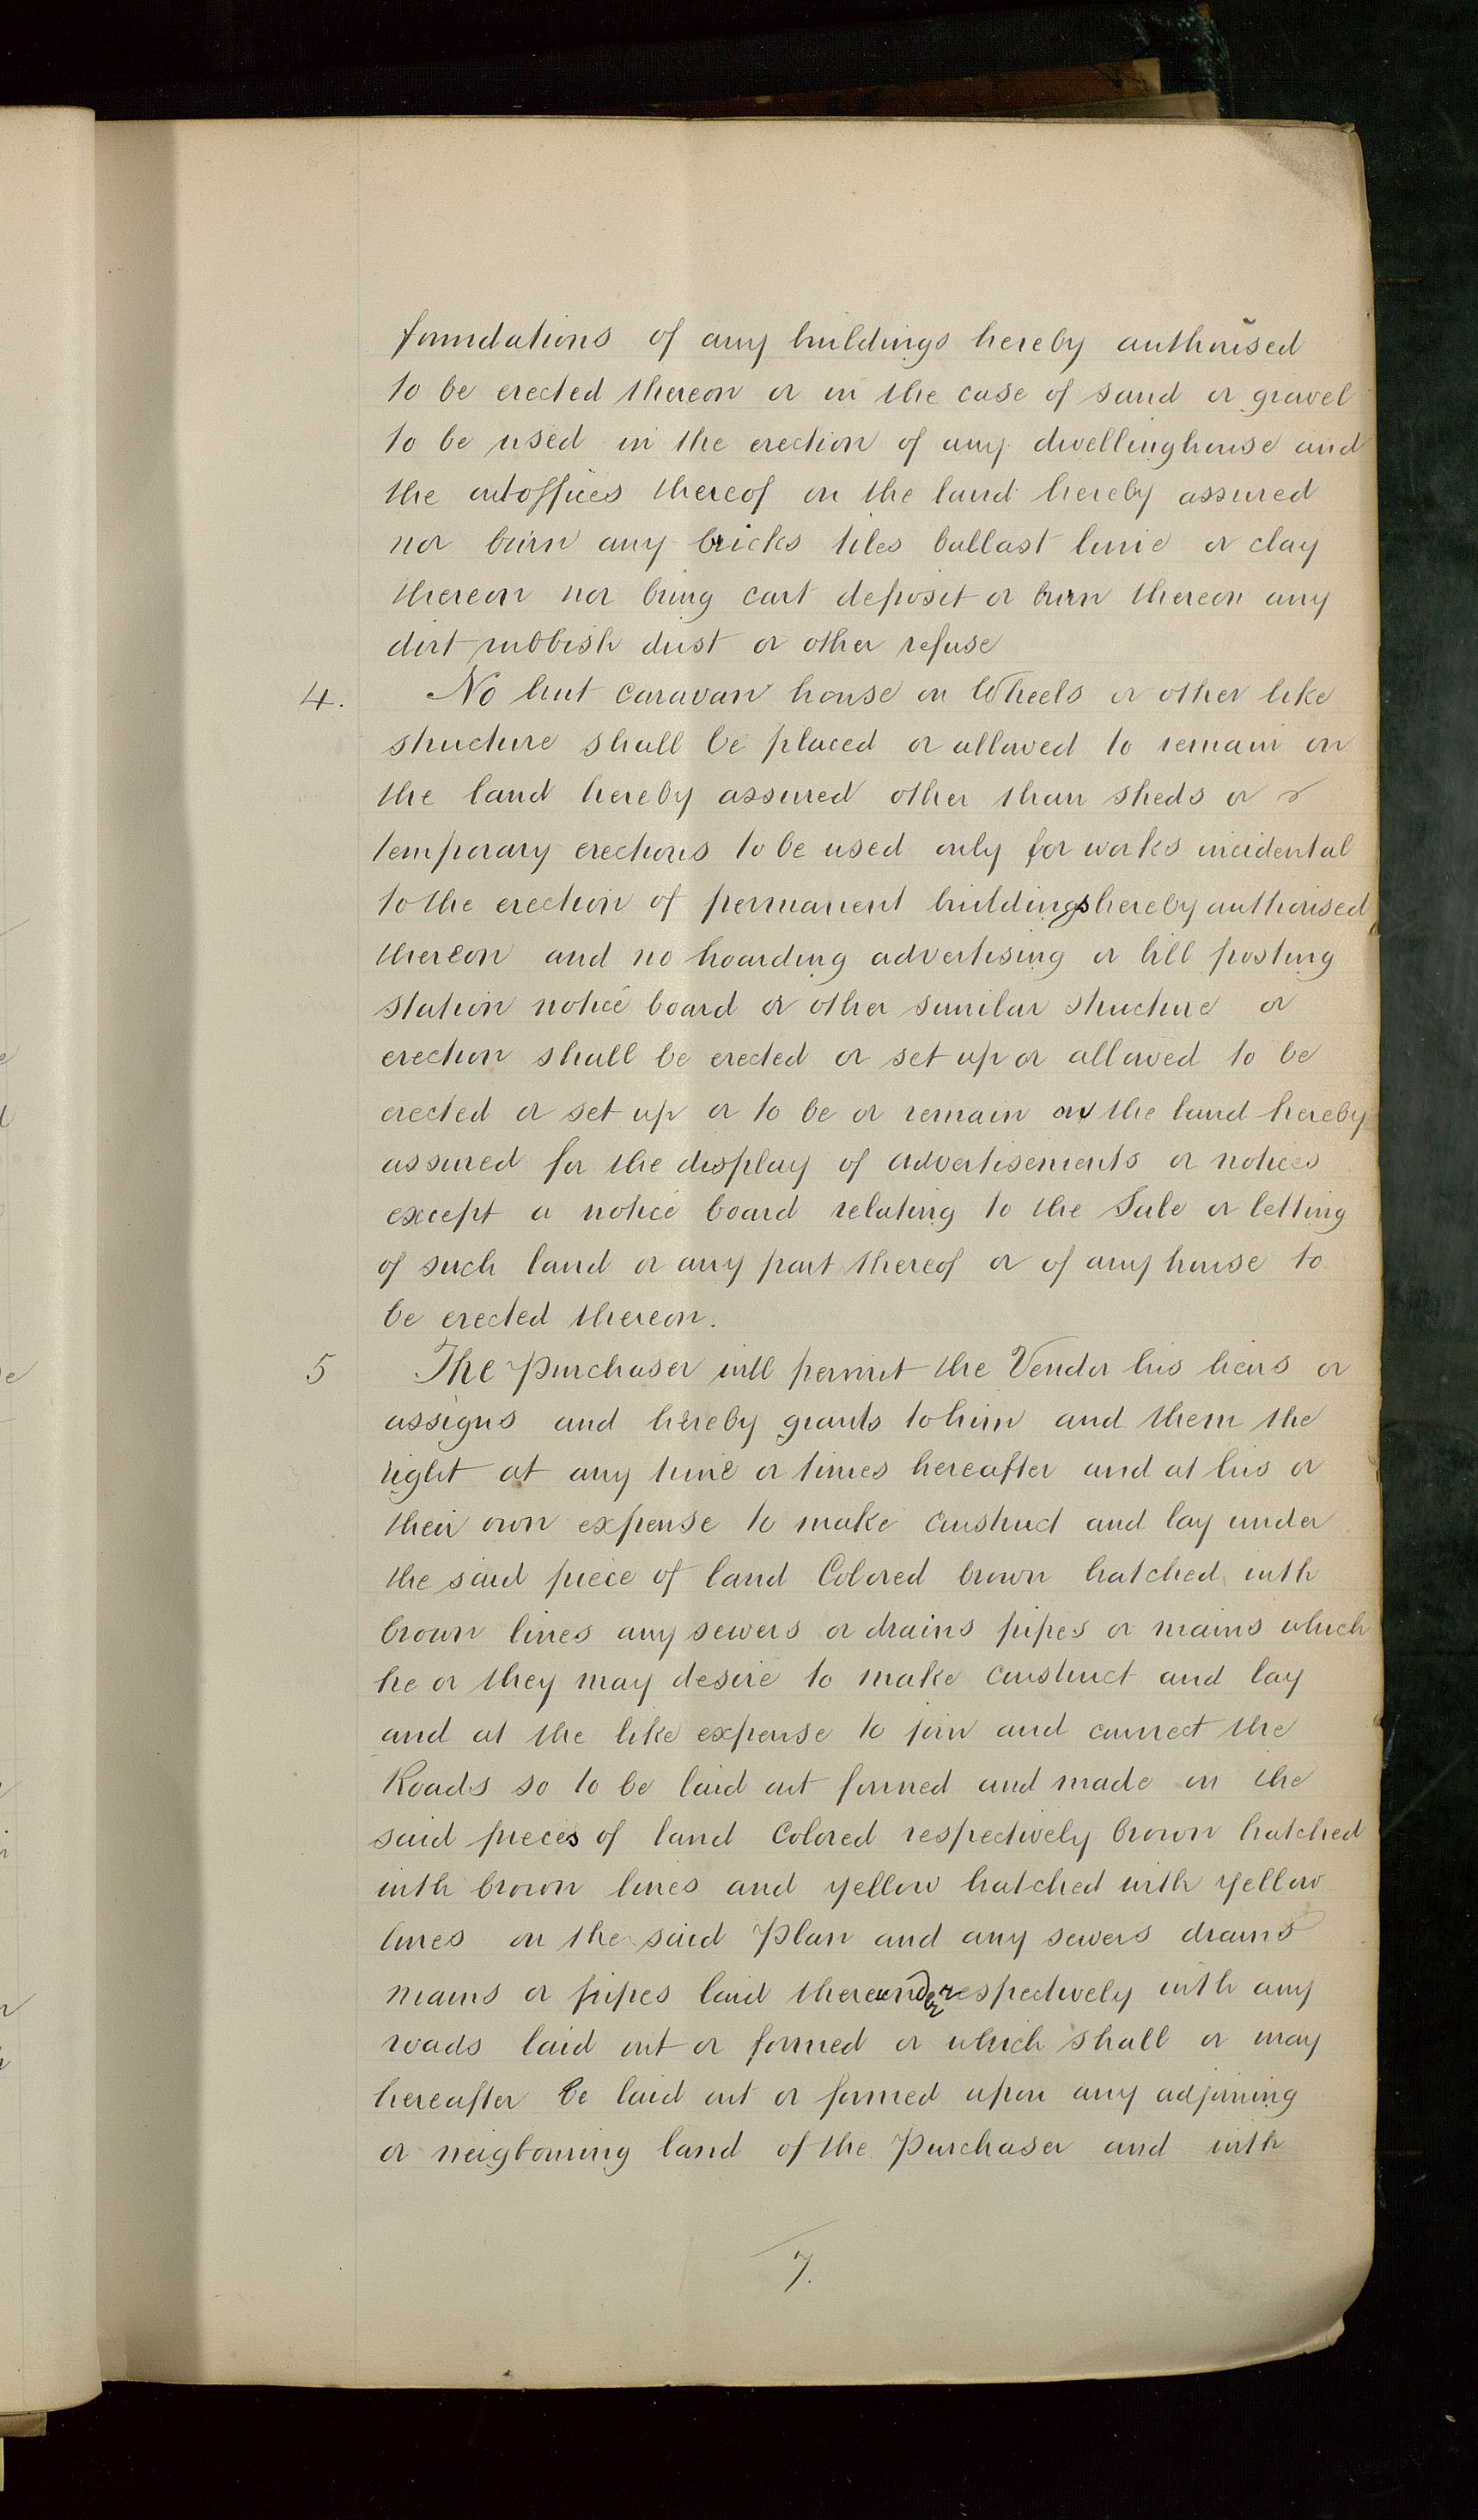 foundations of any buildings hereby authorised
to be erected thereon or in the case of sand or gravel
to be used in the erection of any dwellinghouse and
the outoffices thereof on the land hereby assured
nor burn any bricks tiles ballast lime or clay
thereon nor bring cart deposit or burn thereon any
dirt rubbish dust or other refuse
4. No hut caravan house on Wheels or other like
structure shall be placed or allowed to remain on
the land hereby assured other than sheds or
temporary erections to be used only for works incidental
to the erection of permanent buildings hereby authorised
thereon and no hoarding advertising or bill posting
station notice board or other similar structure or
erection shall be erected or set up or allowed to be
erected or set up or to be or remain on the land hereby
assured for the display of advertisements or notices
except a notice board relating to the Sale or letting
of such land or any part thereof or of any house to
be erected thereon.
5 The Purchaser will permit the Vendor his heirs or
assigns and hereby grants to him and them the
right at any time or times hereafter and at his or
their own expense to make construct and lay under
the said piece of land Colored brown hatched with
brown lines any sewers or drains pipes or mains which
he or they may desire to make construct and lay
and at the like expense to join and connect the
Roads so to be laid out formed and made on the
said pieces of land Colored respectively brown hatched
with brown lines and yellow hatched with yellow
lines on the said Plan and any sewers drains
mains or pipes laid thereunder respectively with any
roads laid out or formed or which shall or may
hereafter be laid out or formed upon any adjoining
or neigbouring land of the Purchaser and with
7.